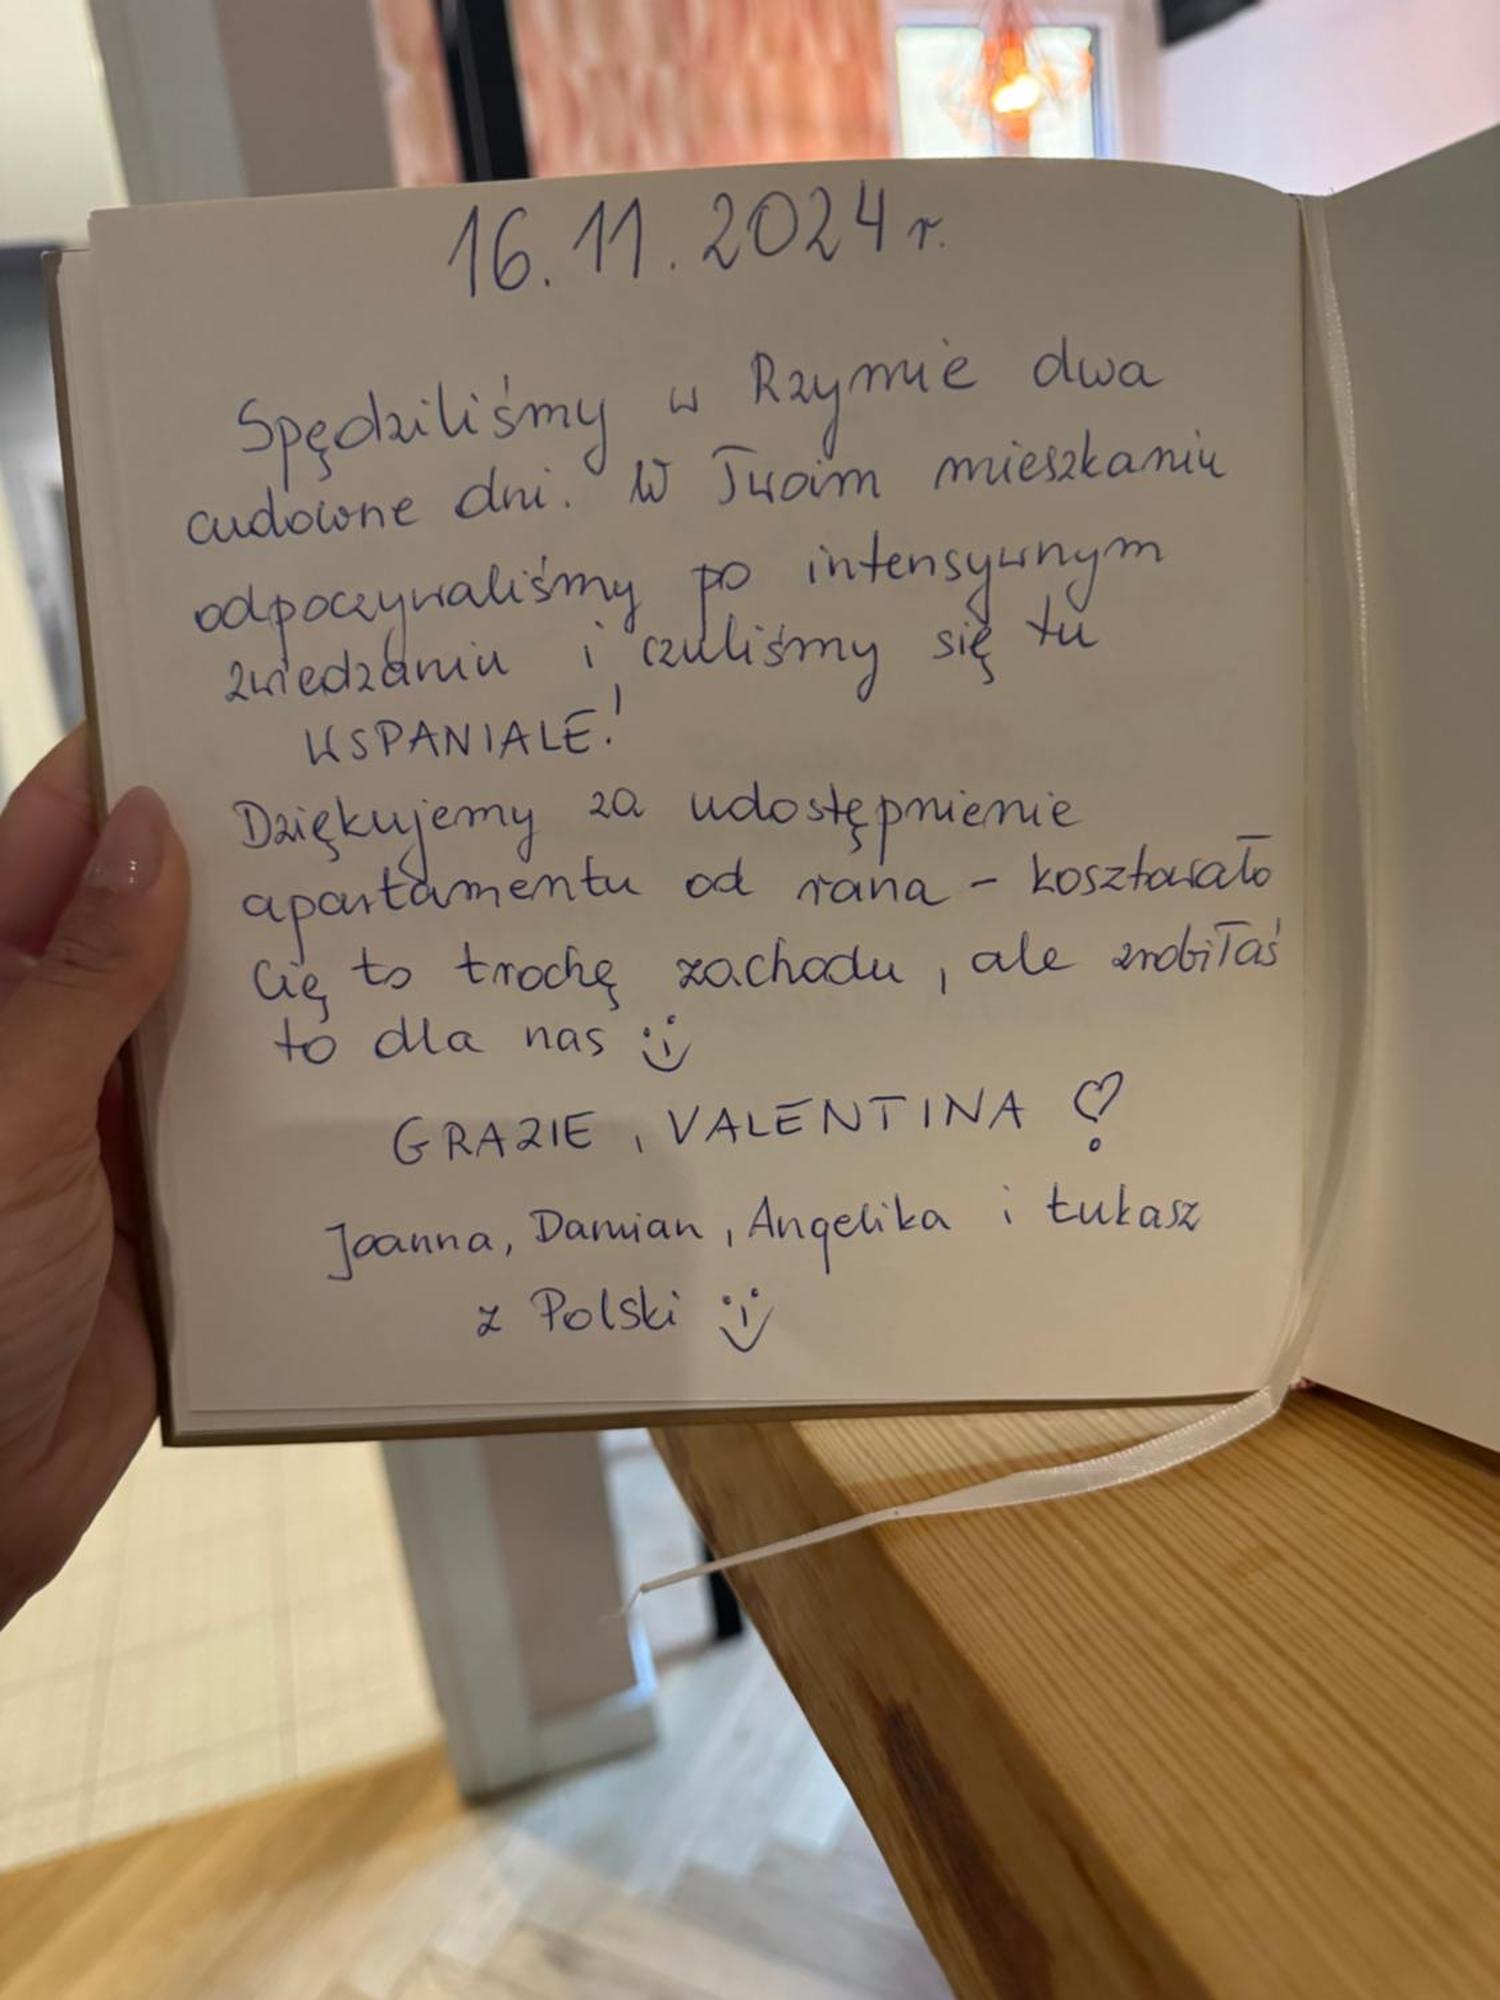 16.11.2024 r.
Spędziliśmy w Rzymie dwa
cudowne dni. W Twoim mieszkaniu
odpoczywaliśmy po intensywnym
zwiedzaniu i czuliśmy się tu
WSPANIALE!
Dziękujemy za udostępnienie
apartamentu od rana - kosztowało
Cię to trochę zachodu, ale zrobiłaś
to dla nas :)
GRAZIE, VALENTINA ❣
Joanna, Damian, Angelika i Łukasz
z Polski :)